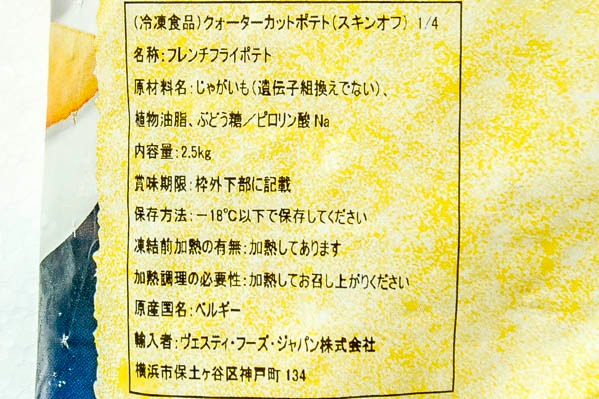 (冷凍食品)クォーターカットポテト(スキンオフ) 1/4
名称:フレンチフライポテト
原材料名:じゃがいも(遺伝子組換えでない)、
植物油脂、ぶどう糖/ピロリン酸Na
内容量:2.5kg
賞味期限:枠外下部に記載
保存方法:-18℃以下で保存してください
凍結前加熱の有無:加熱してあります
加熱調理の必要性:加熱してお召し上がりください
原産国名:ベルギー
輸入者:ヴェスティ・フーズ・ジャパン株式会社
横浜市保土ヶ谷区神戸町134